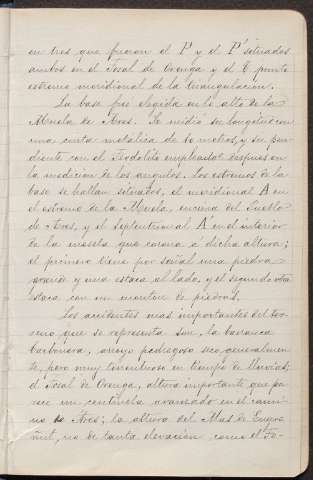 en tres que fueron el P y el P' situados
ambos en el Tosal de Orenga y el C punto
estremo meridional de la triangulacion.
La base fué elegida en lo alto de la
Muela de Ares. Se midió su longitud con
una cinta metálica de 20 metros, y su pen-
diente con el Teodolito empleado despues en
la medicion de los angulos. Los estremos de la
base se hallan situados, el meridional A en
el estremo de la Muela, encima del Pueblo
de Ares, y el Septentrional A' en el interior
de la meseta que corona a dicha altura;
el primero tiene por señal una piedra
grande y una estaca al lado, y el segundo otra
estaca con un monton de piedras.
Los accidentes mas importantes del ter-
reno que se representa son, la barranca
Carbonera, arroyo pedregoso seco generalmen-
te, pero muy torrentuoso en tiempo de lluvias;
el Tosal de Orenga, altura importante que pa-
rece un centinela avanzado en el cami-
no de Ares; la altura del Mas de
no de tanta elevacion como el To-